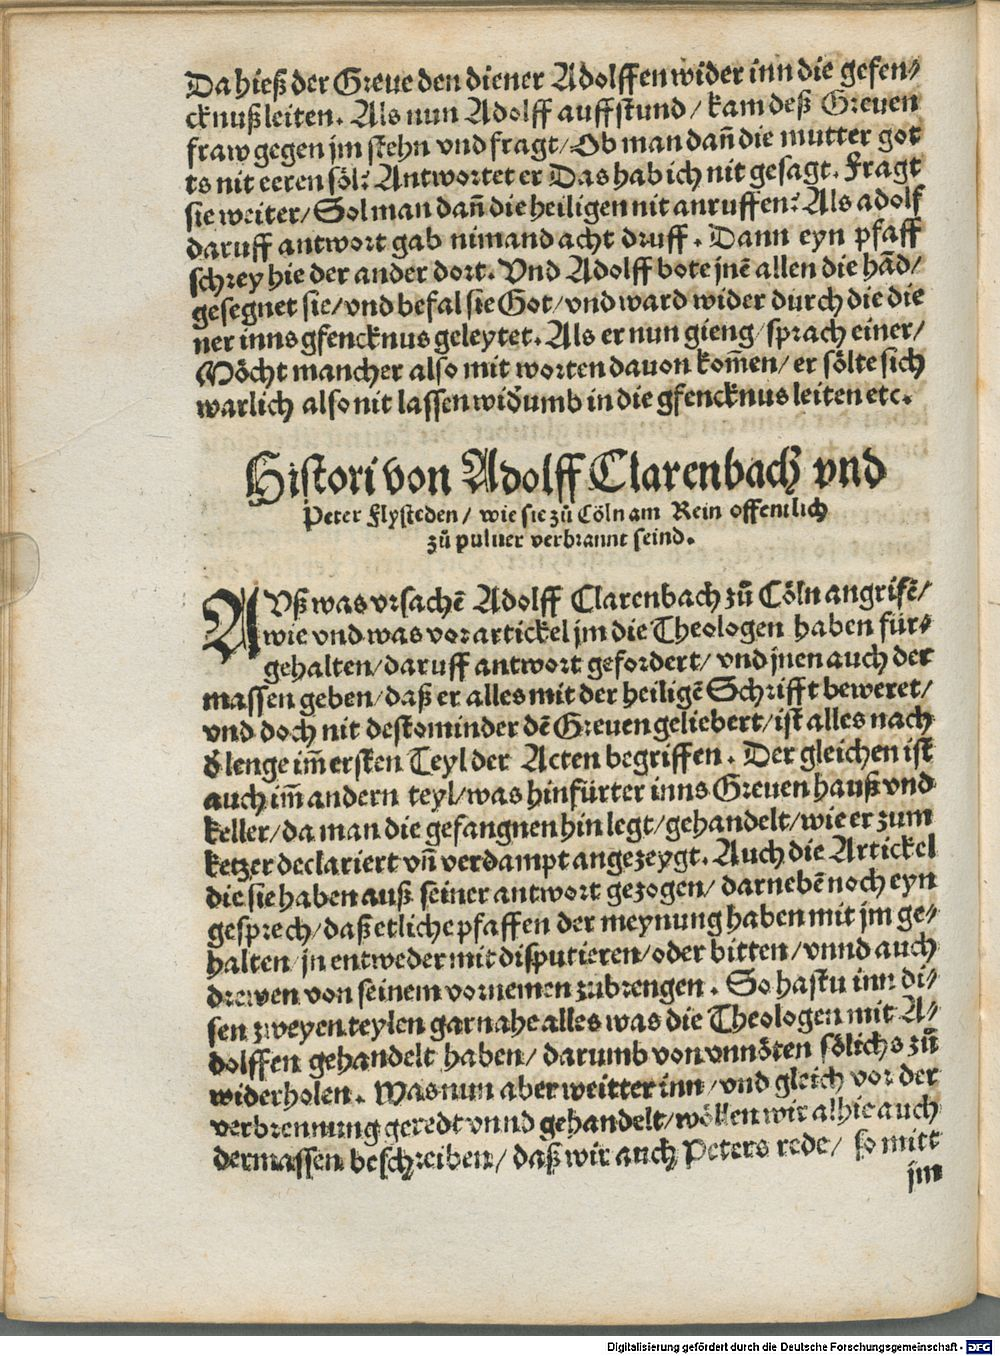 Da hieß der Greue den diener Adolffen wider inn die gefen⸗
cknuß leiten. Als nun Adolff auffstund / kam deß Greuen
fraw gegen jm stehn vnd fragt / Ob man dañ die mutter got
ts nit eeren söl? Antwortet er Das hab ich nit gesagt. Fragt
sie weiter / Sol man dañ die heiligen nit anruffen? Als adolf
daruff antwort gab nimand acht druff. Dann eyn pfaff
schrey hie der ander dort. Vnd Adolff bote jnē allen die hād /
gesegnet sie / vnd befal sie Got / vnd ward wider durch die die
ner inns gfencknus geleytet. Als er nun gieng / sprach einer /
Möcht mancher also mit worten dauon kom̄en / er sölte sich
warlich also nit lassen wid̕umb in die gfencknus leiten etc.
Histori von Adolff Clarenbach vnd
Peter Flysteden / wie sie zů Cöln am Rein offentlich
zů puluer verbrannt seind.
AVß was vrsachē Adolff Clarenbach zů Cöln angrifē /
wie vnd was vor artickel jm die Theologen haben für⸗
gehalten / daruff antwort gefordert / vnd jnen auch der
massen geben / daß er alles mit der heiligē Schrifft beweret /
vnd doch nit destominder dē Greuen geliebert / ist alles nach
d̕ lenge im̄ ersten Teyl der Acten begriffen. Der gleichen ist
auch im̄ andern teyl / was hinfürter inns Greuen hauß vnd
keller / da man die gefangnen hin legt / gehandelt / wie er zum
ketzer declariert vn̄ verdampt angezeygt. Auch die Artickel
die sie haben auß seiner antwort gezogen / darnebē noch eyn
gesprech / daß etliche pfaffen der meynung haben mit jm ge⸗
halten / jn entweder mit disputieren / oder bitten / vnnd auch
drewen von seinem vornemen zubrengen. So hastu inn di⸗
sen zweyen teylen gar nahe alles was die Theologen mit A⸗
dolffen gehandelt haben / darumb von vnnöten sölichs zů
widerholen. Was nun aber weitter inn / vnd gleich vor der
verbrennung geredt vnnd gehandelt / wöllen wir alhie auch
dermassen beschreiben / daß wir auch Peters rede / so mitt
jm
Digitalisierung gefördert durch die Deutsche Forschungsgemeinschaft - DFG